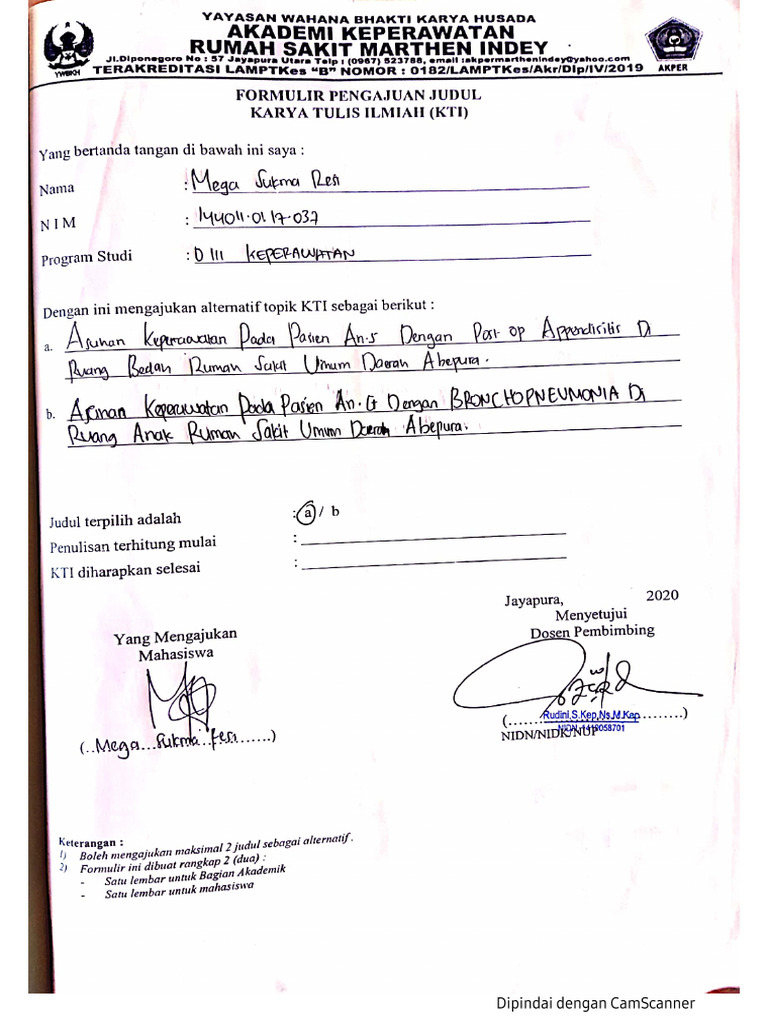 YAYASAN WAHANA BHAKTI KARYA HUSADA
AKADEMI KEPERAWATAN
RUMAH SAKIT MARTHEN INDEY
Jl.Diponegoro No : 57 Jayapura Utara Telp : (0967) 523788, email :akpermarthenindey@yahoo.com
TERAKREDITASI LAMPTKes "B" NOMOR : 0182/LAMPTKes/Akr/Dip/IV/2019
YWBKH
AKPER
FORMULIR PENGAJUAN JUDUL
KARYA TULIS ILMIAH (KTI)
Yang bertanda tangan di bawah ini saya :
Nama : Mega Sukma Resi
N I M : 144011.0117.037
Program Studi : D III KEPERAWATAN
Dengan ini mengajukan alternatif topik KTI sebagai berikut :
a. Asuhan Keperawatan Pada Pasien An.S Dengan Post op Appendisitis Di
Ruang Bedah Rumah Sakit Umum Daerah Abepura.
b. Keperawatan Pada Pasien An. G Dengan BRONCHOPNEUMONIA Di
Ruang Anak Rumah Sakit Umum Daerah Abepura.
Judul terpilih adalah : a / b
Penulisan terhitung mulai :
KTI diharapkan selesai :
Jayapura, 2020
Menyetujui
Dosen Pembimbing
Yang Mengajukan
Mahasiswa
(..Mega...Sukma..Resi.......)
(.......Rudini,S.Kep,Ns,M.Kep.........)
NIDN/NIDK/NUP
Keterangan :
1) Boleh mengajukan maksimal 2 judul sebagai alternatif.
2) Formulir ini dibuat rangkap 2 (dua) :
- Satu lembar untuk Bagian Akademik
- Satu lembar untuk mahasiswa
Dipindai dengan CamScanner